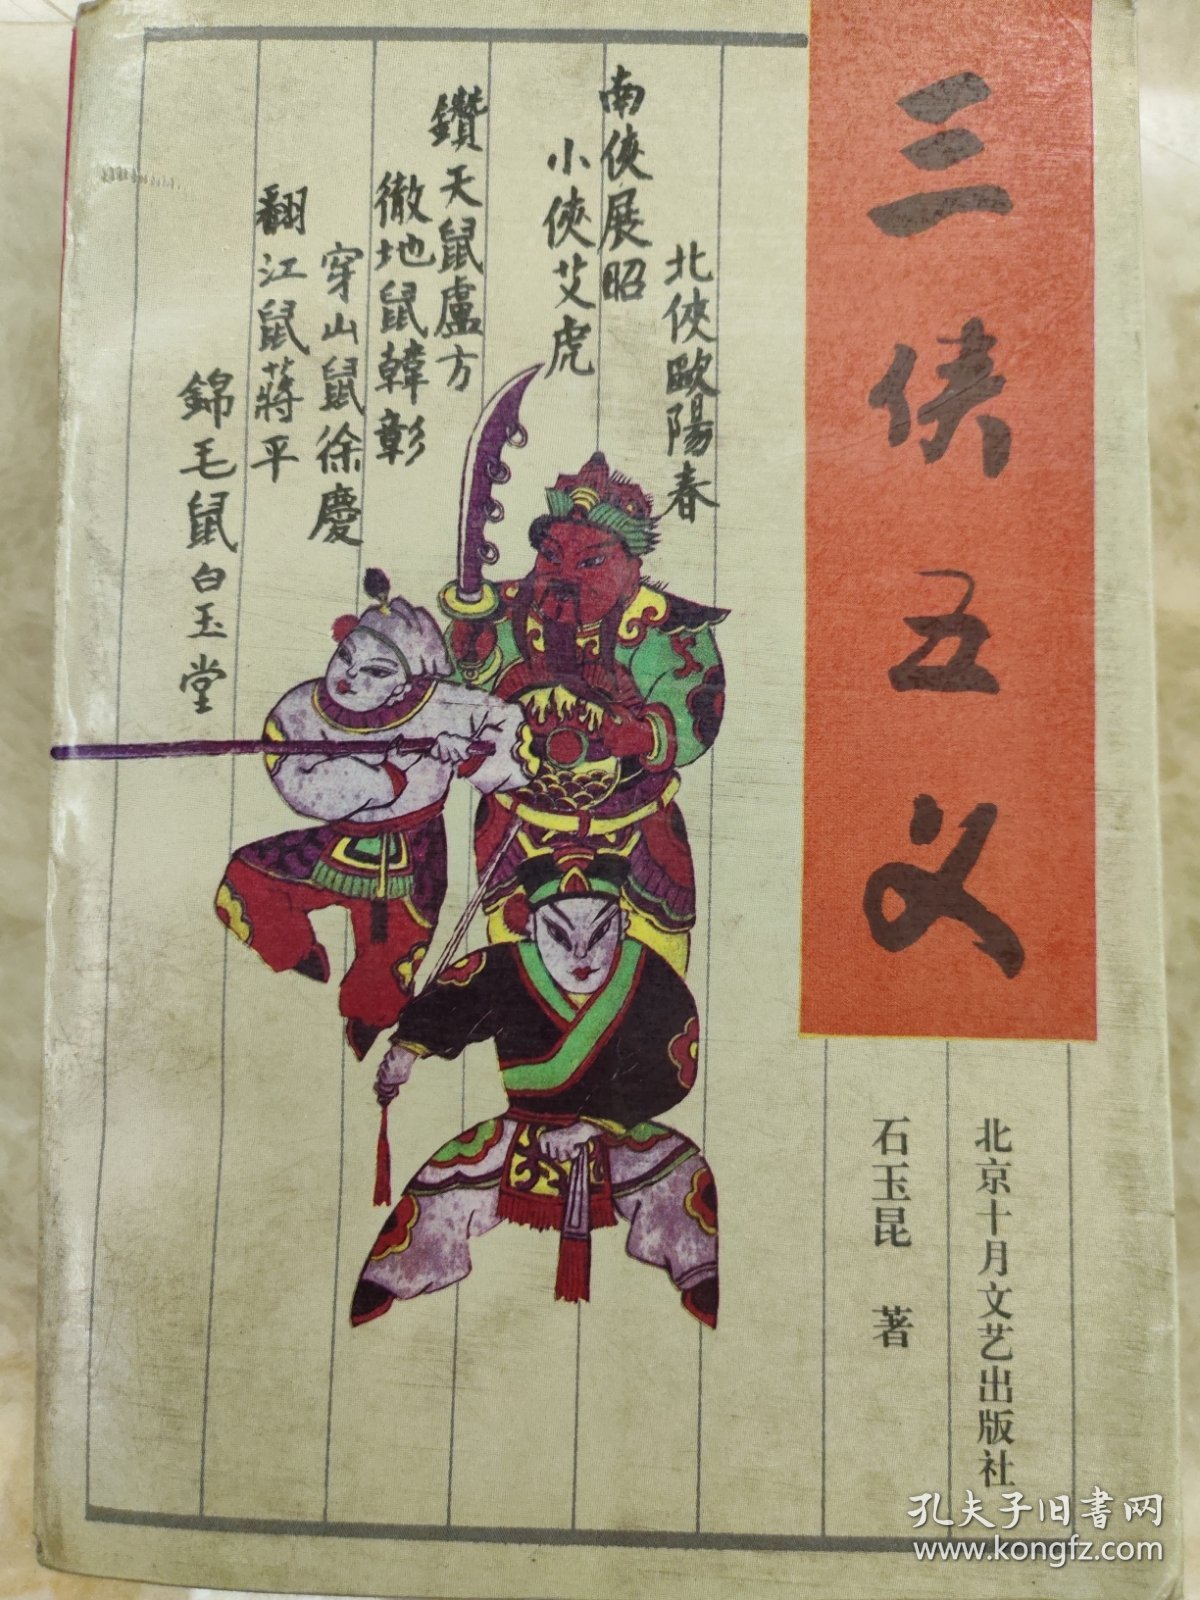 三侠五义
北俠歐陽春
南俠展昭
小俠艾虎
鑽天鼠盧方
徹地鼠韓彰
穿山鼠徐慶
翻江鼠蔣平
錦毛鼠白玉堂
北京十月文艺出版社
石玉昆 著
孔夫子旧書网
www.kongfz.com